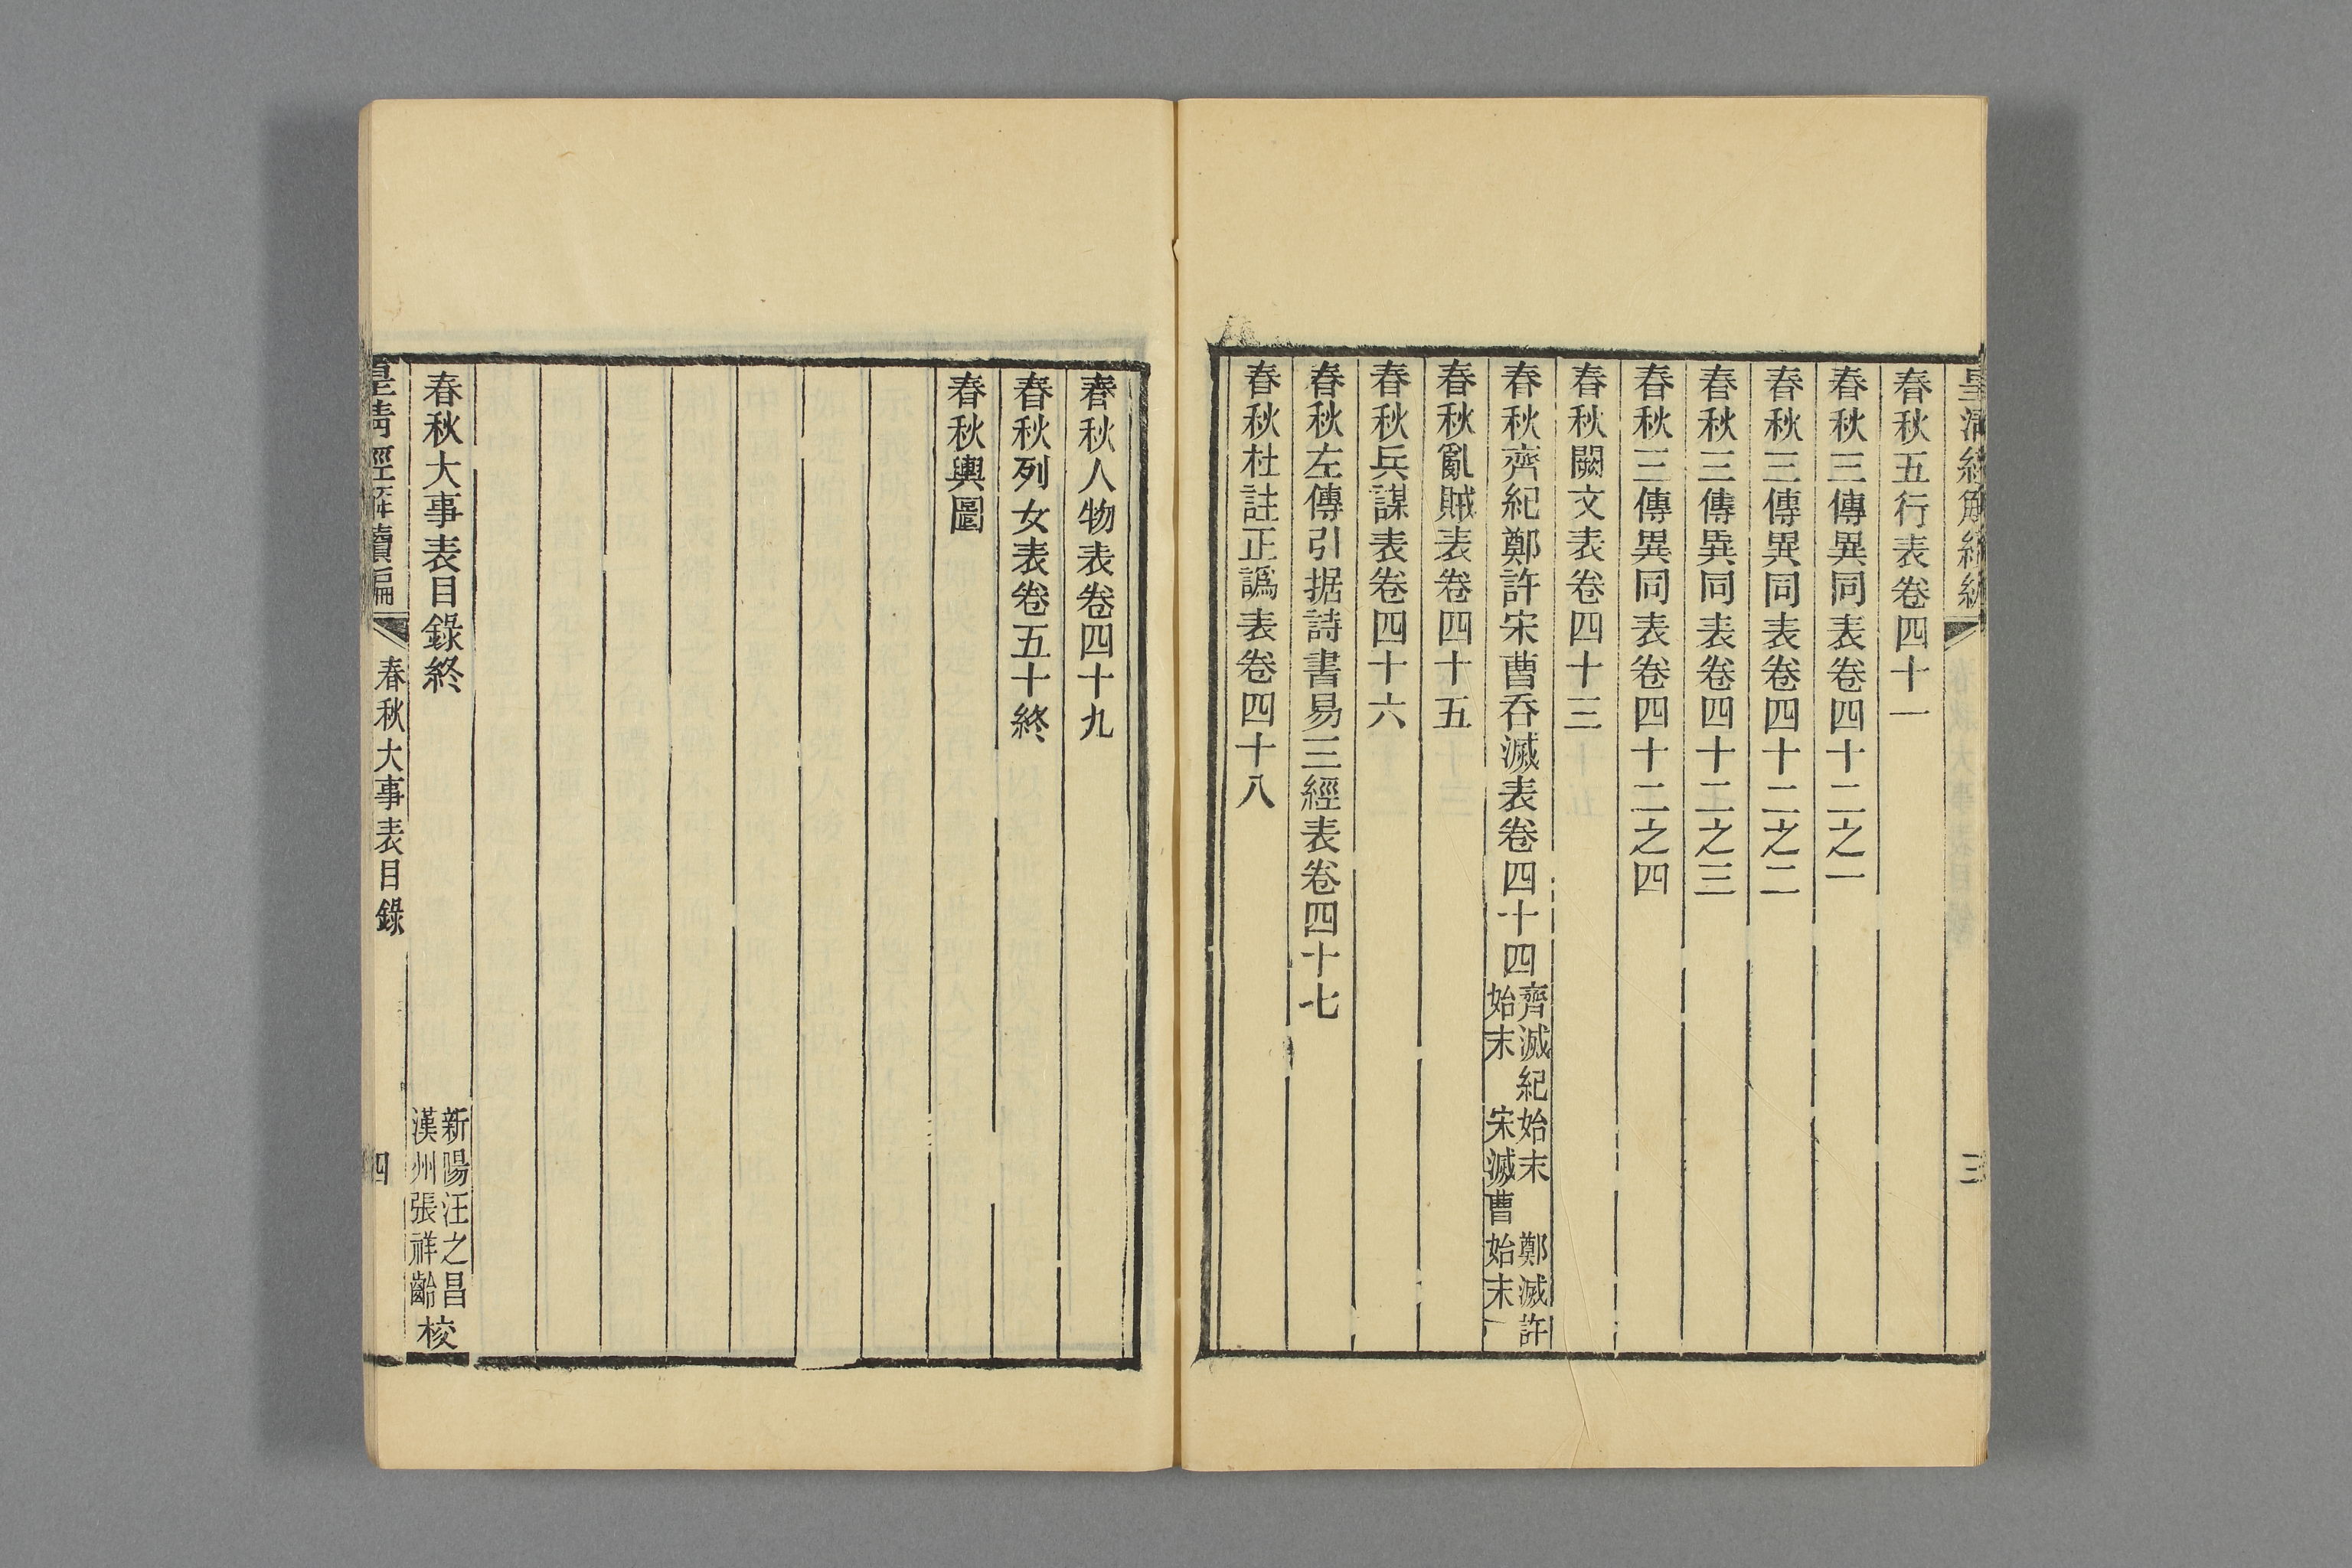 皇清經解續編
三
春秋五行表卷四十一
春秋三傳異同表卷四十二之一
春秋三傳異同表卷四十二之二
春秋三傳異同表卷四十二之三
春秋三傳異同表卷四十二之四
春秋闕文表卷四十三
春秋齊紀鄭許宋曹吞滅表卷四十四
齊滅紀始末 鄭滅許
始末 宋滅曹始末
春秋亂賊表卷四十五
春秋兵謀表卷四十六
春秋左傳引据詩書易三經表卷四十七
春秋杜註正譌表卷四十八
春秋人物表卷四十九
春秋列女表卷五十終
春秋輿圖
春秋大事表目錄終
新陽汪之昌
漢州張祥齡
校
皇清經解續編
春秋大事表目錄
四